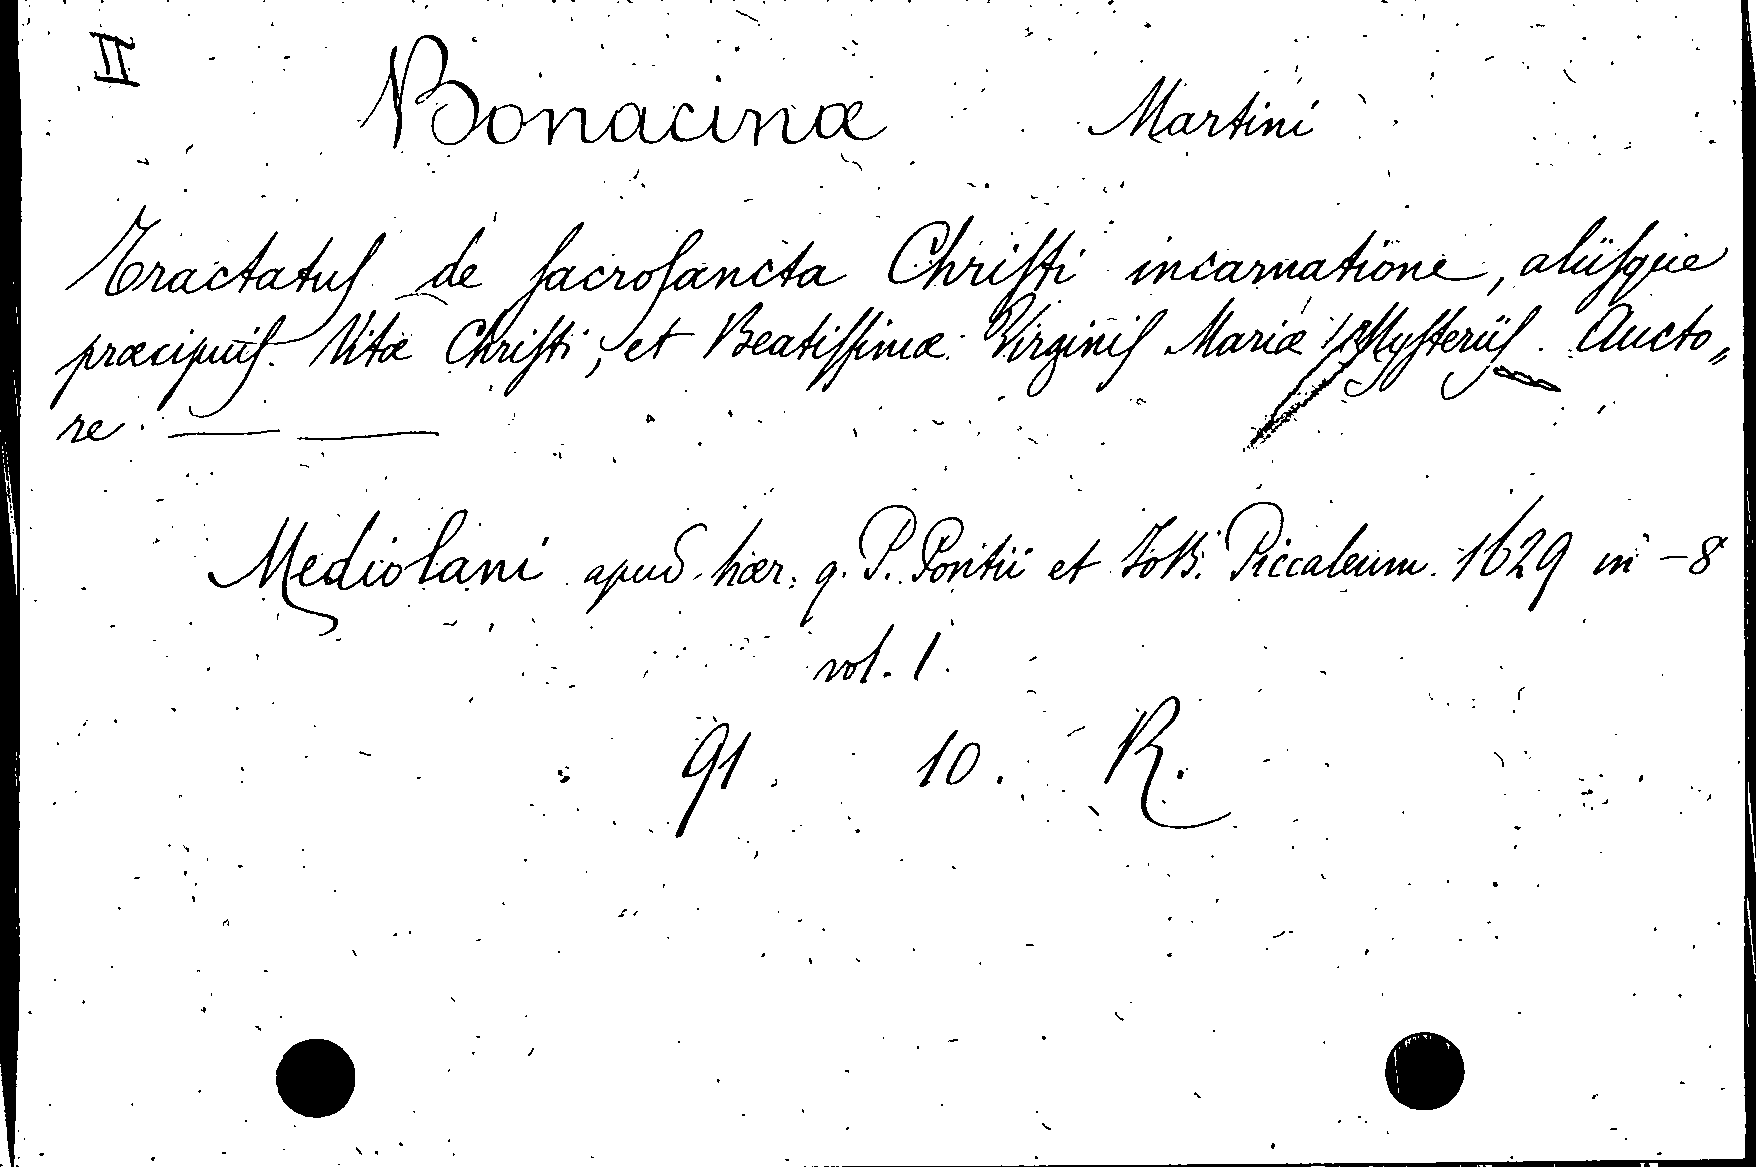 II
Bonacinæ Martini
Tractatuſ de ſacroſancta Chriſti incarnatione, aliiſque
præcipuiſ. Vitæ Chriſti, et Beatiſſimæ Virginiſ Mariæ Myſteriiſ. Aucto„
re. — —
Mediolani apud hær: q. P. Pontii et Jo B. Piccaleum. 1629 in -8
vol. 1.
91. 10. R.